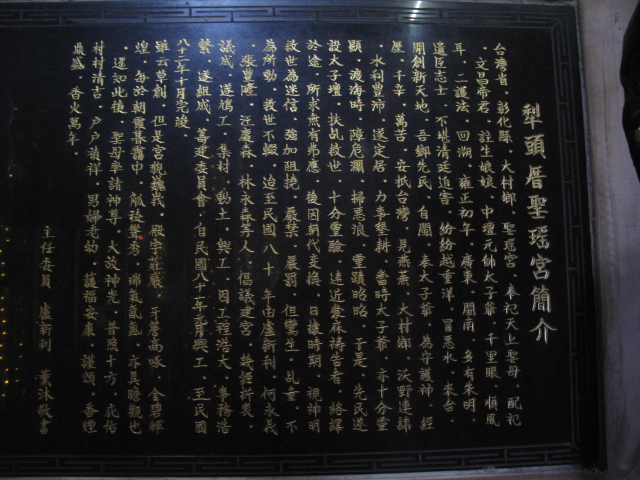 犁頭厝聖瑶宮簡介
台灣省．彰化縣．大村鄉．聖瑶宮．奉祀天上聖母．配祀
．文昌帝君．註生娘娘．中壇元帥太子爺．千里眼．順風
耳．二護法．回溯．雍正初年．廣東．閩南．多有朱明．
遺臣志士．不堪清廷迫害．紛紛越重洋．冒惡水．來台．
開創新天地．吾鄉先民．自閩．奉太子爺．為守護神．經
歷．千辛．萬苦．安抵台灣．見燕霧．大村鄉．沃野連綿
．水利豐沛．遂定居．力事墾耕．當時太子爺．亦十分靈
顯．渡海時．障危瀾．掃惡浪．靈蹟昭昭．于是．先民遂
設太子壇．扶乩救世．十分靈驗．遠近蒙庥禱告者．絡繹
於途．所求無有弗應．後因朝代变換．日據時期．視神明
救世為迷信．強加阻撓．嚴禁．嚴罰．但鸞生．乩童．不
為所動．救世不輟．迨至民國八十．年由盧新利．何永義
．張豊隆．汪慶森．林永森等人．倡議建宮．幾經折衷．
議成．遂鳩工．集材．動土．興工．因工程浩大．事務浩
繁．遂組成．籌建委員會．自民國八十二年皆興工．至民國
八十三年十月完竣．
雖云草創．但是宮貌巍峨．殿宇莊嚴．牙簷高啄．金碧暉
煌．每於朝霞暮靄中．觚稜聳秀．佛氣氤氳．亦具瞻觀也
．遂如此後．聖母率諸神尊．大放神光．普照十方．庇佑
村村清吉．戶戶禎祥．男婦老幼．護福安康．謹頌．香煙
鼎盛．香火萬年．
主任委員 盧新利 葉沐敬書